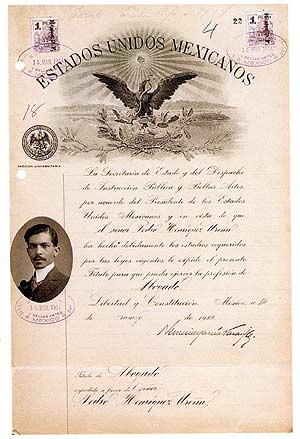 4
22
1 PESO
1 PESO
14 MAR. 1914
14 MAR. 1914
BELLAS ARTES
ESTADOS UNIDOS MEXICANOS
18
SECCION UNIVERSITARIA
La Secretaría de Estado y del Despacho
de Instrucción Pública y Bellas Artes
por acuerdo del Presidente de los Estados
Unidos Mexicanos y en vista de que
el señor Pedro Henríquez Ureña
ha hecho debidamente los estudios requeridos
por las leyes vigentes, le expide el presente
Título para que pueda ejercer la profesión de
Abogado.
Libertad y Constitución. México, a 14
de marzo de 1914
14 MAR. 1914
BELLAS ARTES
MEXICO
Título de Abogado
expedido a favor del señor
Pedro Henríquez Ureña